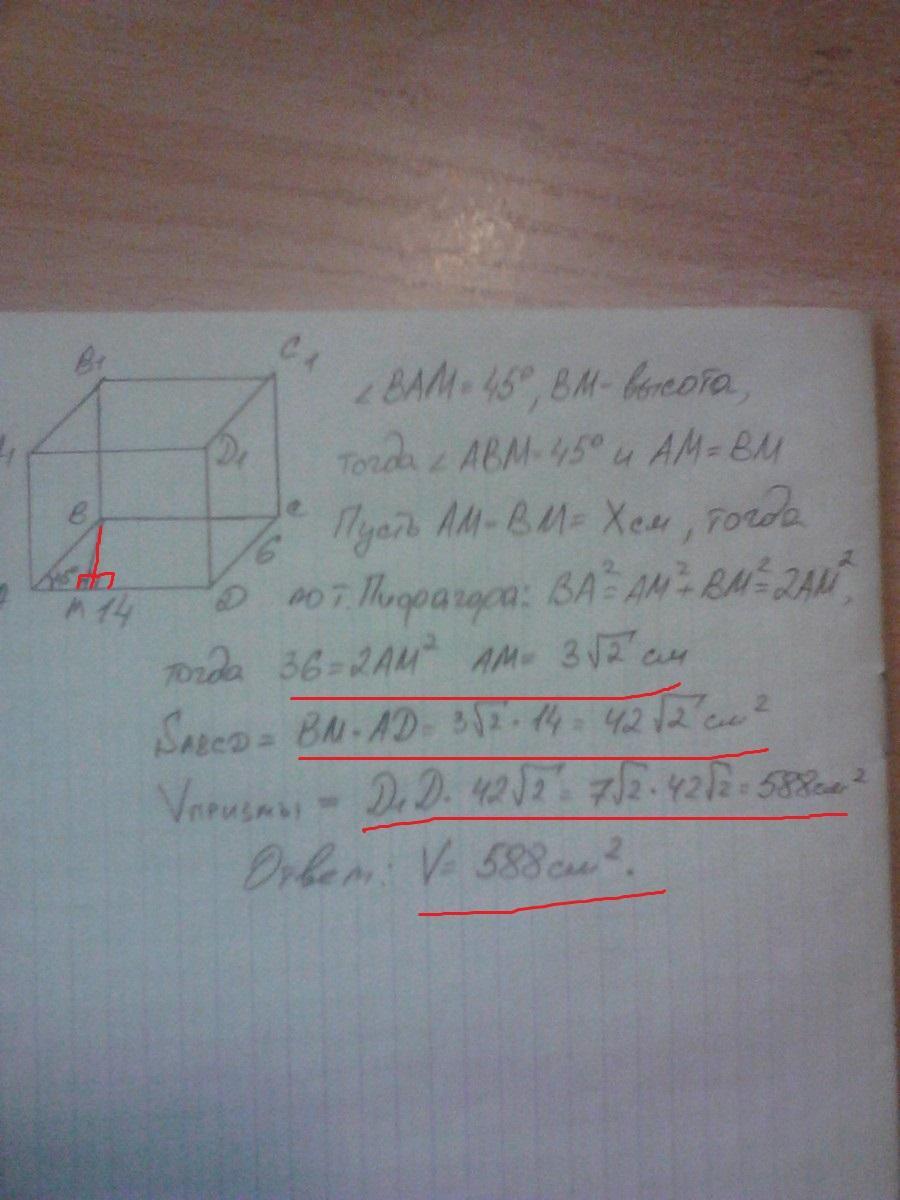 B1
C1
D1
B
C
6
45°
M 14
D
∠BAM=45°, BM-высота,
тогда ∠ABM=45° и AM=BM
Пусть AM=BM=Xсм, тогда
по т. Пифрагора: BA²=AM²+BM²=2AM²,
тогда 36=2AM² AM= 3√2 см
SABCD = BM·AD= 3√2·14= 42√2 см²
Vпризмы = D1D· 42√2= 7√2·42√2=588см²
Ответ: V= 588см².